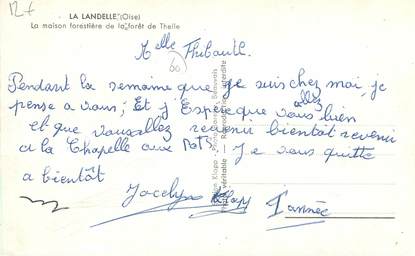 12+
LA LANDELLE (Oise)
La maison forestière de la forêt de Thelle
Melle Thibault.
60
Pendant la semaine que je suis chez moi, je
pense a vous; Et j Espère que vous allez bien
et que vous allez revenir bientôt revenir
a la Chapelle aux Pots. Je vous quitte
a bientôt
Jocelyn 1 année